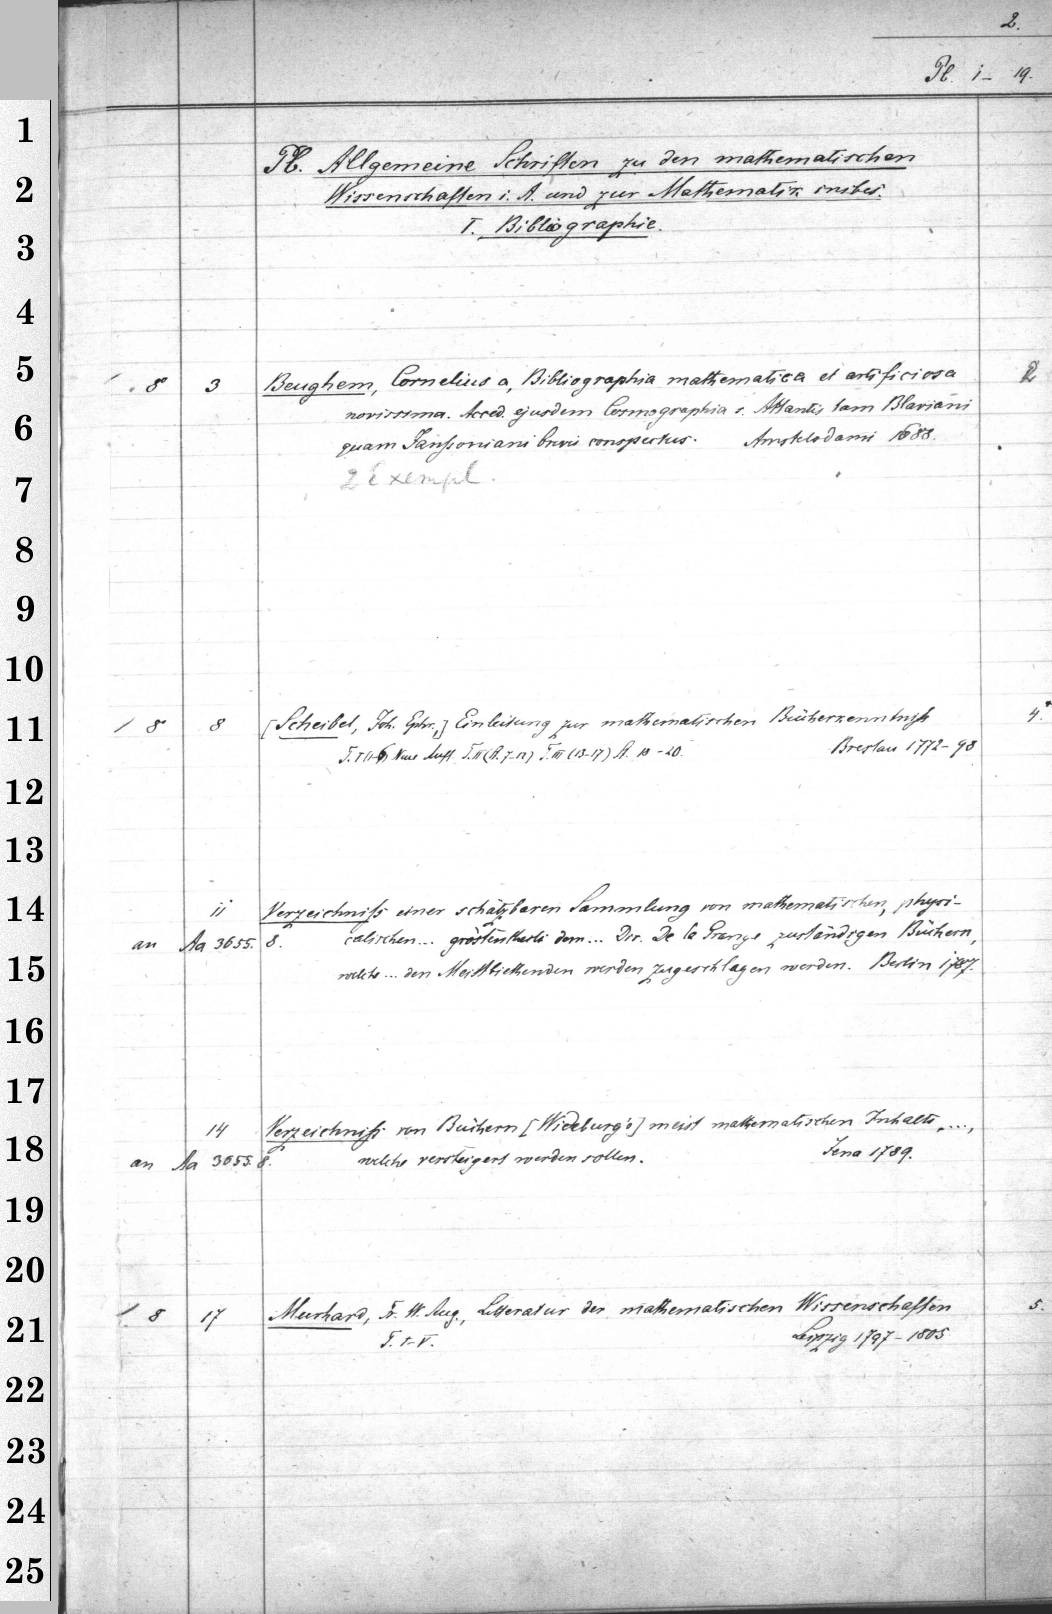 2.
Pb. 1 - 19.
Pb. Allgemeine Schriften zu den mathematischen
Wissenschaften i. A. und zur Mathematik insbes.
I. Bibliographie.
8° 3 Beughem, Cornelius a, Bibliographia mathematica et artificiosa 2
novissima. Acced. ejusdem Cosmographia s. Atlantis tam Blaviani
quam Janssoniani brevis conspectus. Amstelodami 1688.
2 Exempl.
/ 8° 8 [Scheibel, Joh. Ephr.,] Einleitung zur mathematischen Bücherkenntniss 4.
T. I (1-6) Neue Aufl. T. II (A. 7-12) T. III (13-17) A. 18-20. Breslau 1772-98
11 Verzeichniss einer schätzbaren Sammlung von mathematischen, physi-
an Aa 3655. 8° calischen... gröstentheils dem... Dir. De la Grange zuständigen Büchern,
welche... den Meistbiethenden werden zugeschlagen werden. Berlin 1787.
14 Verzeichniss von Büchern [Wideburg's] meist mathematischen Inhalts, ...,
an Aa 3655. 8° welche versteigert werden sollen. Jena 1789.
/ 8 17 Murhard, Fr. W. Aug., Litteratur der mathematischen Wissenschaften 5.
T. I-V. Leipzig 1797-1805
1
2
3
4
5
6
7
8
9
10
11
12
13
14
15
16
17
18
19
20
21
22
23
24
25